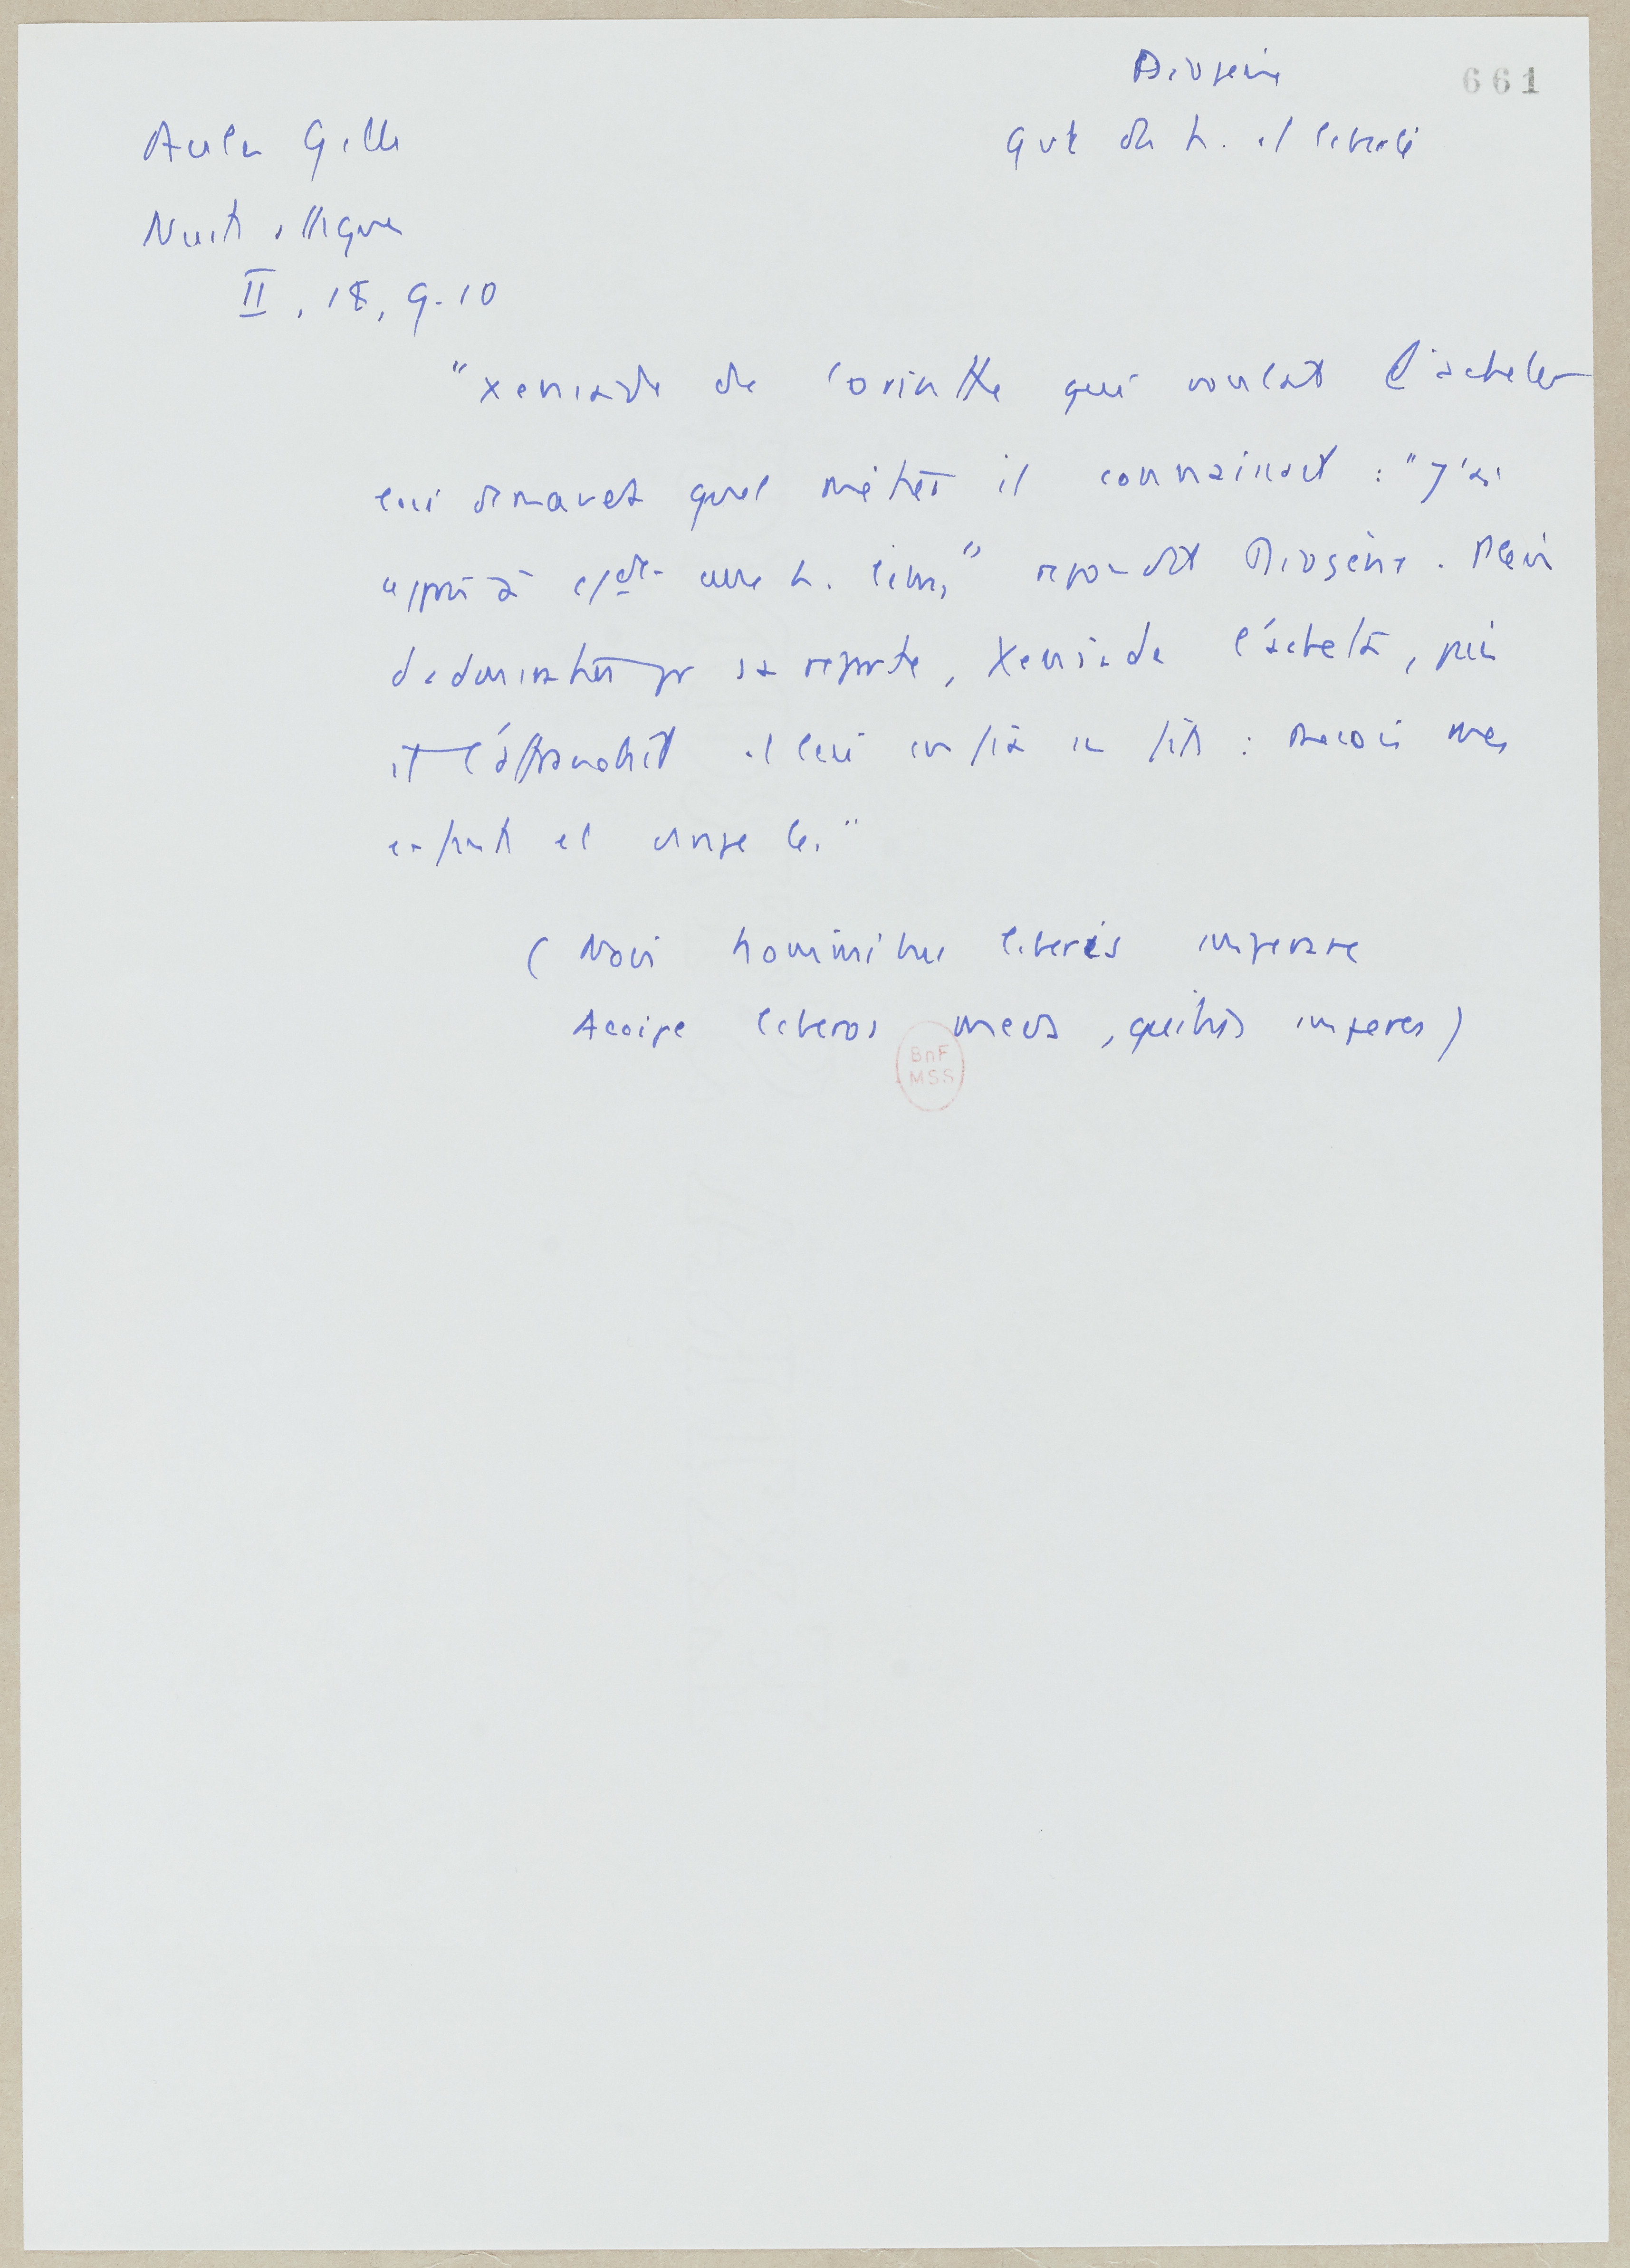 Diogène
661
Gvt des h. et liberté
Aulu Gelle
Nuits attiques
II, 18, 9-10
"Xéniade de Corinthe qui voulait l'acheter
lui demanda quel métier il connaissait : "J'ai
appris à cder aux h. libres" répondit Diogène. Plein
d'admiration pr sa réponse, Xéniade l'acheta, puis
il l'affranchit et lui confia ses fils : Reçois mes
enfants et
(Novi hominibus liberis imperare
Accipe liberos meos, quibus imperes)
BnF
MSS